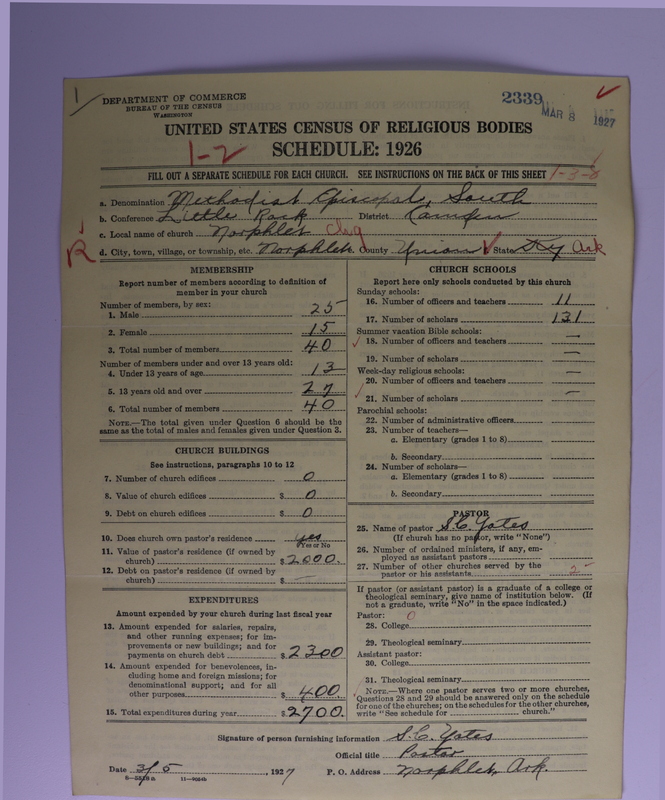 1
DEPARTMENT OF COMMERCE
BUREAU OF THE CENSUS
WASHINGTON
2339
MAR 8 1927
UNITED STATES CENSUS OF RELIGIOUS BODIES
1-2
SCHEDULE: 1926
FILL OUT A SEPARATE SCHEDULE FOR EACH CHURCH. SEE INSTRUCTIONS ON THE BACK OF THIS SHEET
1-3-8
a. Denomination Methodist Episcopal, South
b. Conference Little Rock District Camden
c. Local name of church Norphlet
R
d. City, town, village, or township, etc. Norphlet County Union State Ark
MEMBERSHIP
Report number of members according to definition of
member in your church
Number of members, by sex:
1. Male 25
2. Female 15
3. Total number of members 40
Number of members under and over 13 years old:
4. Under 13 years of age 13
5. 13 years old and over 27
6. Total number of members 40
NOTE.—The total given under Question 6 should be the
same as the total of males and females given under Question 3.
CHURCH BUILDINGS
See instructions, paragraphs 10 to 12
7. Number of church edifices 0
8. Value of church edifices $ 0
9. Debt on church edifices $ 0
10. Does church own pastor's residence yes
Yes or No
11. Value of pastor's residence (if owned by
church) $ 2000.
12. Debt on pastor's residence (if owned by
church) $ —
EXPENDITURES
Amount expended by your church during last fiscal year
13. Amount expended for salaries, repairs,
and other running expenses; for im-
provements or new buildings; and for
payments on church debt $ 2300
14. Amount expended for benevolences, in-
cluding home and foreign missions; for
denominational support; and for all
other purposes $ 400
15. Total expenditures during year $ 2700.
CHURCH SCHOOLS
Report here only schools conducted by this church
Sunday schools:
16. Number of officers and teachers 11
17. Number of scholars 131
Summer vacation Bible schools:
18. Number of officers and teachers —
19. Number of scholars —
Week-day religious schools:
20. Number of officers and teachers —
21. Number of scholars —
Parochial schools:
22. Number of administrative officers
23. Number of teachers—
a. Elementary (grades 1 to 8)
b. Secondary
24. Number of scholars—
a. Elementary (grades 1 to 8)
b. Secondary
PASTOR
25. Name of pastor S.C. Yates
(If church has no pastor, write "None")
26. Number of ordained ministers, if any, em-
ployed as assistant pastors
27. Number of other churches served by the
pastor or his assistants 2
If pastor (or assistant pastor) is a graduate of a college or
theological seminary, give name of institution below. (If
not a graduate, write "No" in the space indicated.)
Pastor: 0
28. College
29. Theological seminary
Assistant pastor:
30. College
31. Theological seminary
NOTE.—Where one pastor serves two or more churches,
Questions 28 and 29 should be answered only on the schedule
for one of the churches; on the schedules for the other churches,
write "See schedule for church."
Signature of person furnishing information S.C. Yates
Official title Pastor
Date 3/5, 1927 P. O. Address Norphlet, Ark.